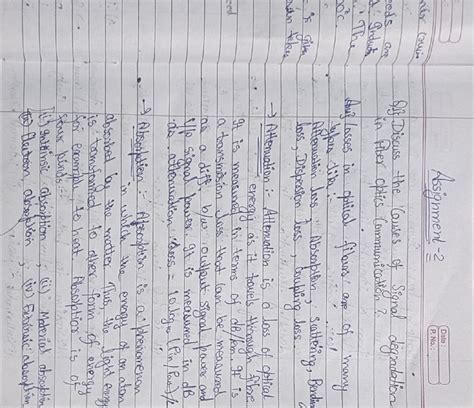 Date:
P. No.:
Assignment-2
Q1 Discuss the Causes of Signal degradation
in fiber optics Communication?
Ans Losses in optical fibers are of many
types like:-
Attenuation loss: Absorption, Scattering, Bending
loss, Dispersion loss, Coupling loss
→ Attenuation:- Attenuation is a loss of optical
energy as it travels through fibre
It is measured in terms of dB/km. It is
a transmission loss that can be measured
as a diff b/w output signal power and
i/p signal power. It is measured in dB
→ Absorption:- Absorption is a phenomenon
in which the energy of
absorbed by the matter. Thus, the light energy
is transformed to other form of energy
for example to heat. Absorption is of
four kinds:-
(i) Intrinsic absorption, (ii) Material absorption
(iii) Electron absorption, (iv) Extrinsic absorption